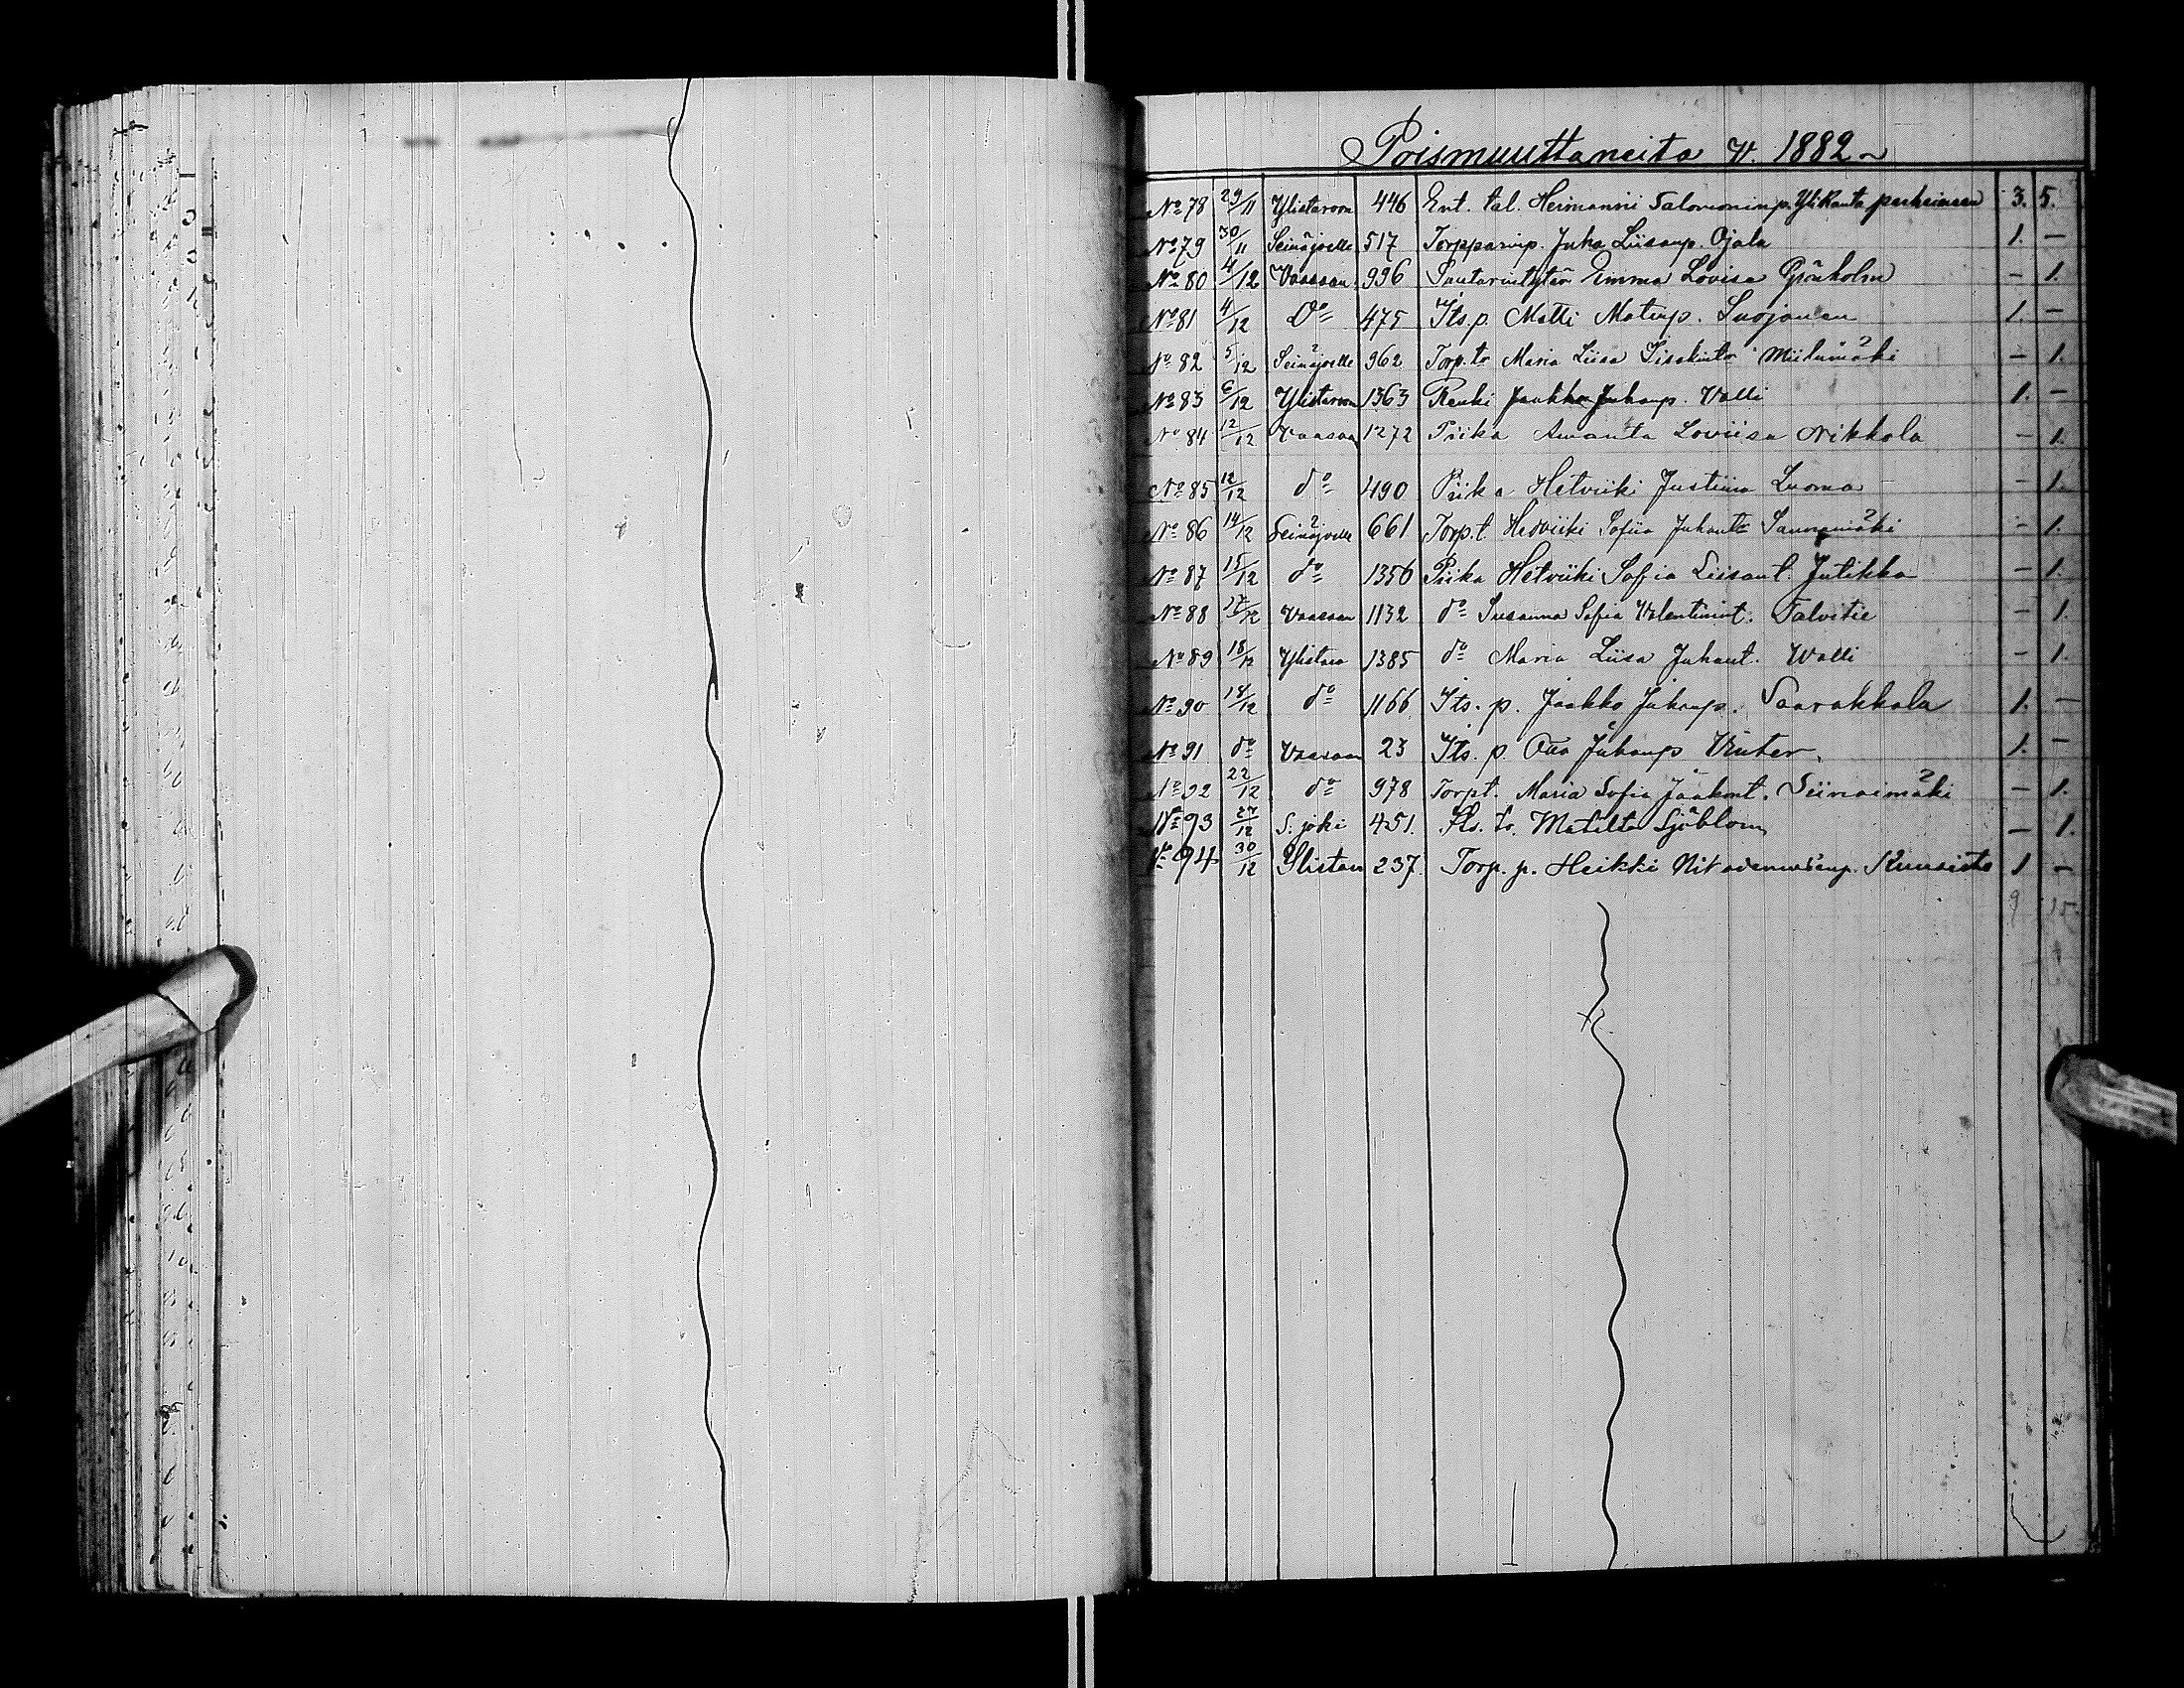 Poismuuttaneita W. 1882
No 78 29/11 Ylistaroon 446 Ent. tal. Hermanni Salomoninp. Ylikanta perheineen 3. 5.
No 79 30/11 Seinäjoelle 517 Torpparinp. Juha Liisanp. Ojala 1. —
No 80 4/12 Vaasaan 996 Suutarintytär Emma Lovisa Grönholm — 1.
No 81 4/12 Do 475 Its. p. Matti Matinp. Luojanen 1. —
No 82 5/12 Seinäjoelle 962 Torp. tr Maria Liisa Iisakintr Miilumäki — 1.
No 83 6/12 Ylistaroon 1363 Renki Jaakko Juhanp. Valli 1. —
No 84 12/12 Vaasaan 1272 Piika Amanta Loviisa Nikkola — 1.
No 85 12/12 do 490 Piika Hetviiki Justiina Luoma — 1.
No 86 14/12 Seinäjoelle 661 Torp. t. Hedviiki Sofia Juhant. — 1.
No 87 15/12 do 1356 Piika Hetviiki Sofia Liisant. Jutikka — 1.
No 88 17/12 Vaasaan 1132 do Susanna Sofia Valentinint. Talvitie — 1.
No 89 18/12 Ylistaro 1385 do Maria Liisa Juhant. Walli — 1.
No 90 18/12 do 1166 Its. p. Jaakko Juhanp. Saarakkala 1. —
No 91 do Vaasaan 23 Its. p. Juhanp Vinter. 1. —
No 92 22/12 do 978 Torpt. Maria Sofia Jaakont. — 1.
No 93 27/12 S. joki 451. tr. Matilta Sjöblom — 1.
No 94 30/12 Ylistaro 237. Torp. p. Heikki Nikodemuksenp. Kuusisto 1 —
9 15.